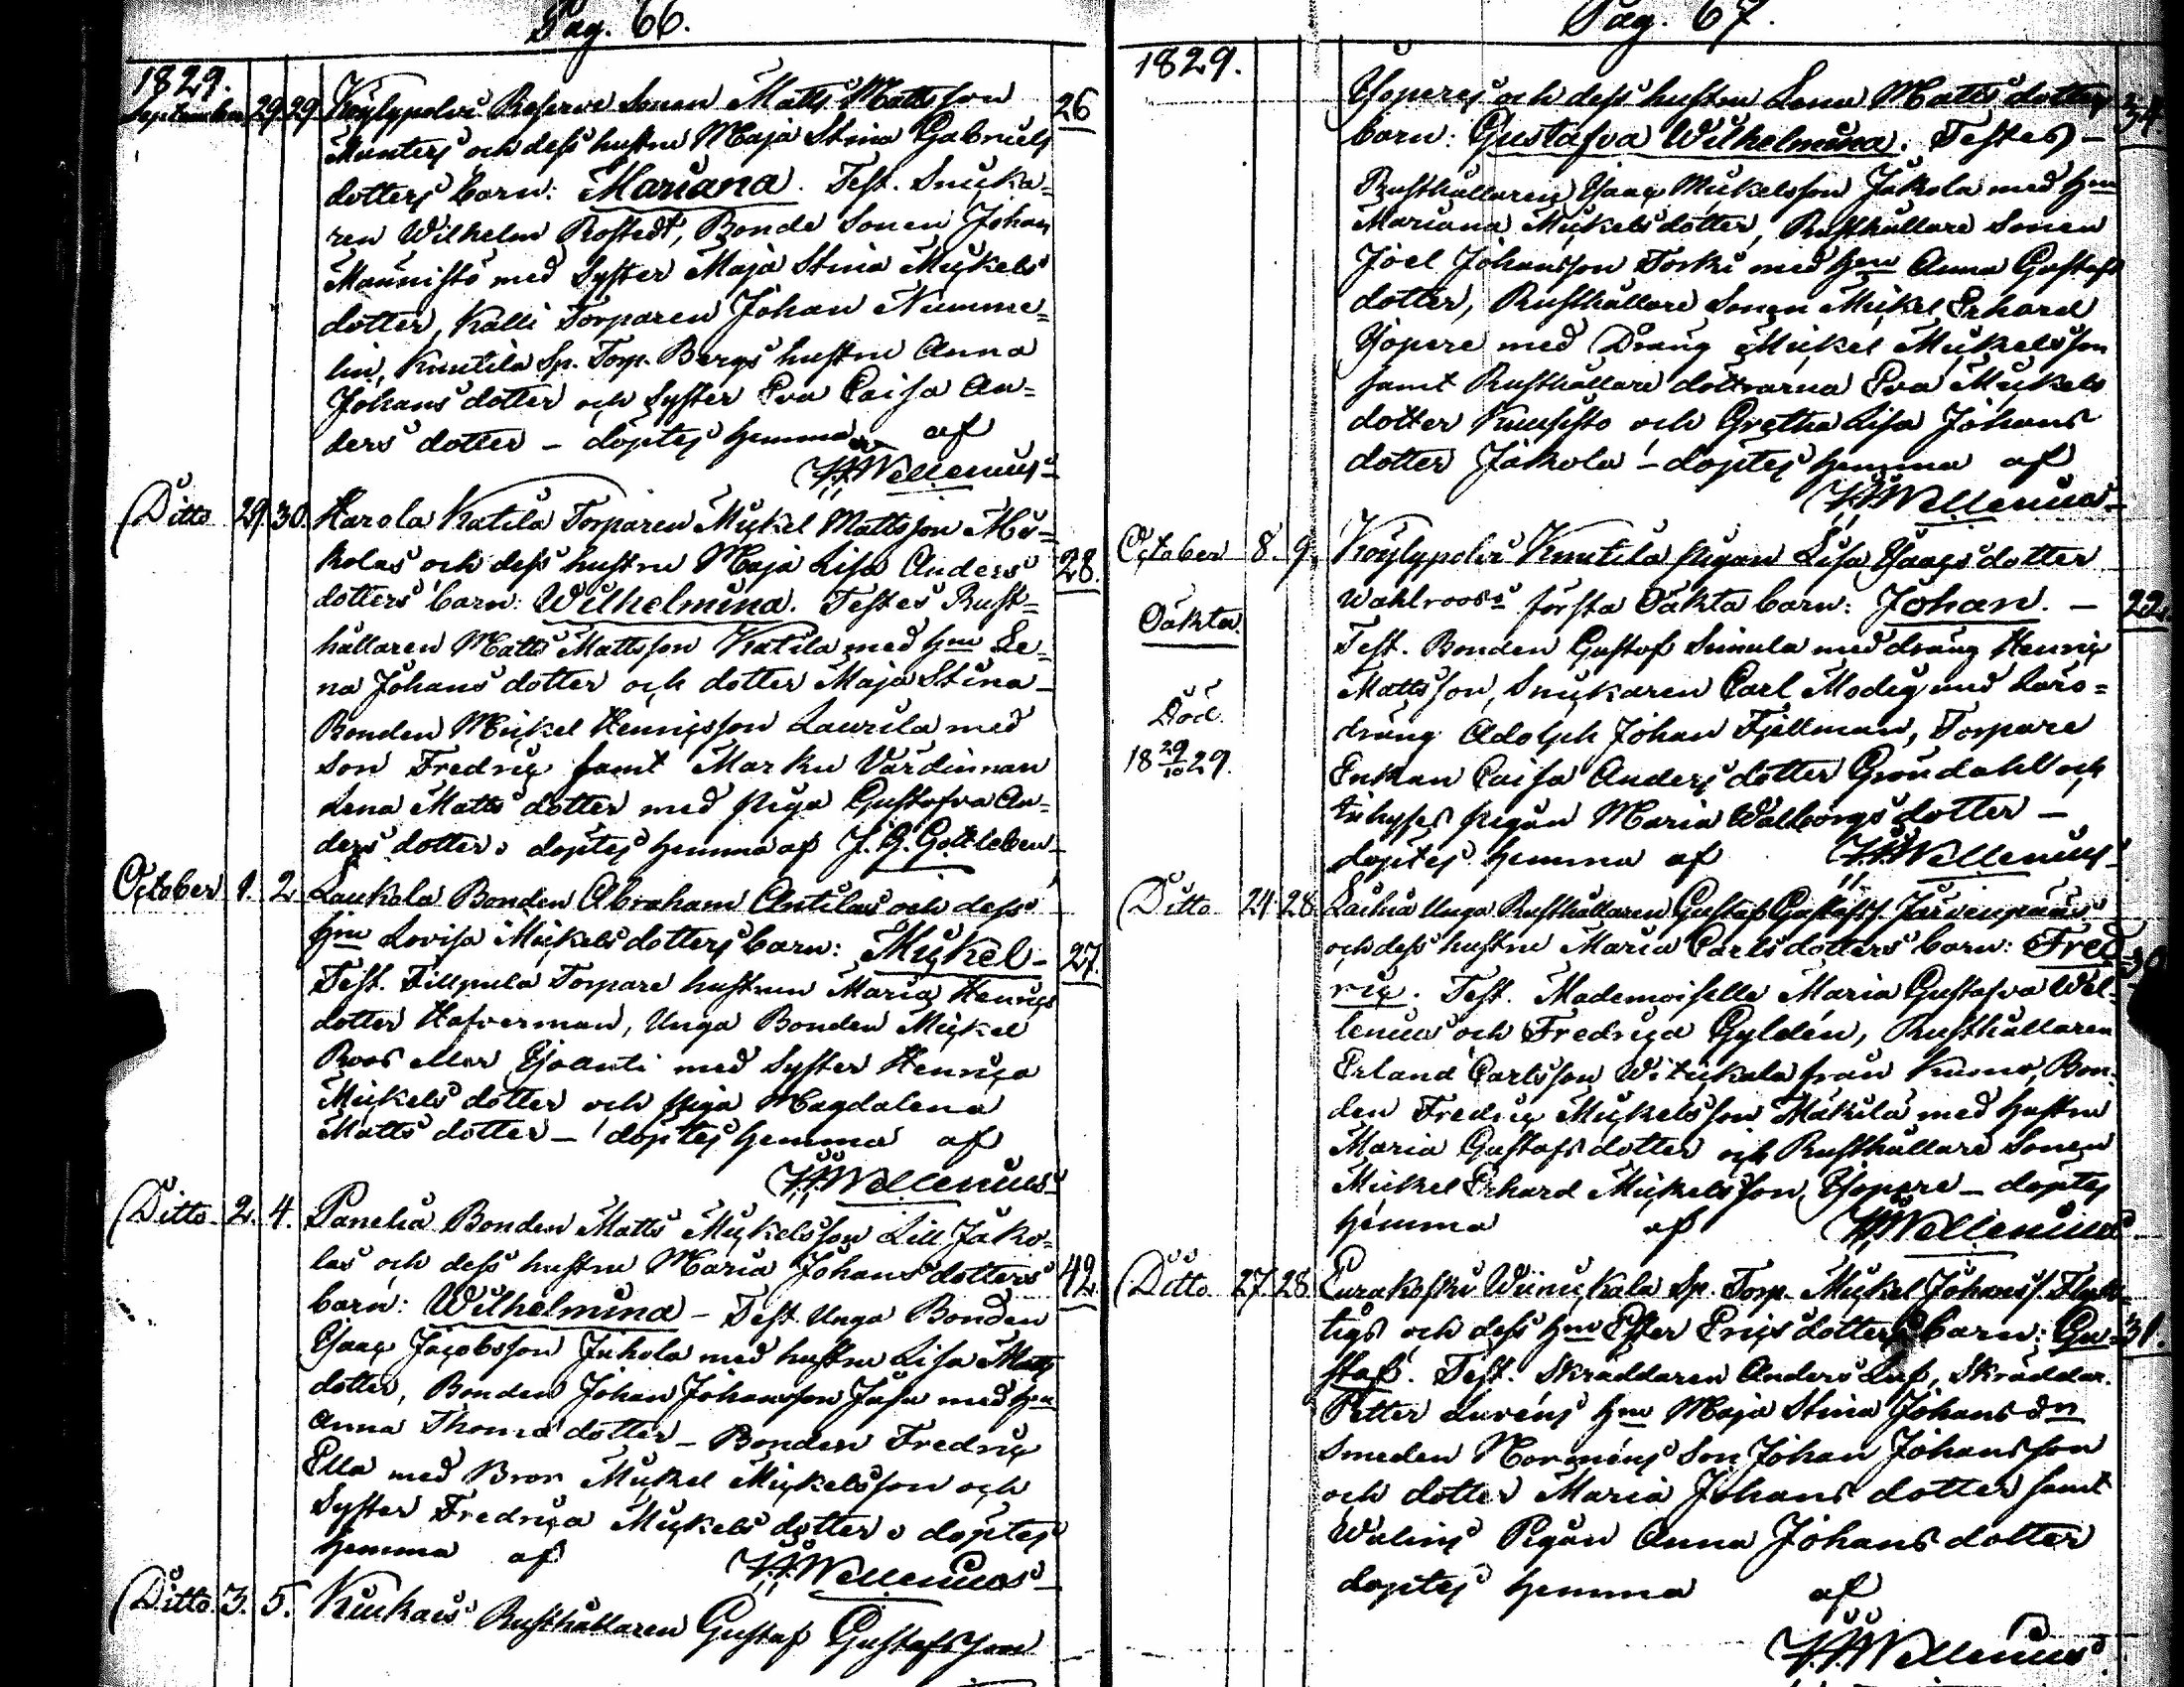 Pag. 66.
1829.
September 29. 29. Köylypolvi Reserve Sonen Matts Mattsson 26
Munters och dess hustru Maja Stina Gabriels
dotters barn: Mariana. Test. Snicka=
ren Wilhelm Rostedt, Bonde Sonen Johan
Mannisto med Syster Maja Stina Mickels
dotter, Kalli Torparen Johan Numme=
lin, Knutila Sp. Torp. Bergs hustru Anna
Johans dotter och Syster Eva Caisa An=
ders dotter – döptes hemma af
Wellenius
Ditto 29. 30. Harola Katila Torparen Mickel Mattsson
kolas och dess hustru Maja Lisa Anders 28.
dotters barn: Wilhelmina. Testes Rust=
hållaren Matts Mattsson Katila med Hru Le=
na Johans dotter och dotter Maja Stina
Bonden Mickel Henricsson Laurila med
Son Fredric samt Marku Värdinnan
Lena Matts dotter med piga Gustafva An=
ders dotter, döptes hemma af J. G. Gottleben
October 1. 2. Laukola Bonden Abraham Antilas och dess
Hru Lovisa Mickels dotters barn: Mickel – 27.
Test. Fillpula Torpare hustrun Maria Henrics
dotter Hafverman, Unga Bonden Mickel
Roos eller med Syster Henrica
Mickels dotter och piga Magdalena
Matts dotter – döptes hemma af
Wellenius
Ditto 2. 4. Panelia Bonden Matts Mickelsson Lill Jako=
las och dess hustru Maria Johans dotters 42.
barn: Wilhelmina – Test. Unga Bonden
Isaac Jacobsson Juhola med hustru Lisa Matts
dotter, Bonden Johan Johansson med Hru
Anna Thomæ dotter – Bonden Fredric
Ella med Bror Mickel Mickelsson och
Syster Fredrica Mickels dotter, döptes
hemma af Wellenius
Ditto 3. 5. Kiukais Rusthållaren Gustaf Gustafsson
Pag. 67.
1829.
Yoperes och dess hustru Lena Matts dotters 34
barn: Gustafva Wilhelmina. Testes –
Rusthållaren Isaac Mickelsson Jakola med Hru
Mariana Mickels dotter, Rusthållare Sonen
Joel Johansson Torki med Hru Anna Gustafs
dotter, Rusthållare Sonen Mickel Erhard
Yopere med Dräng Mickel Mickelsson
samt Rusthållare döttrarna Eva Mickels
dotter och Gretha Lisa Johans
dotter Jakola – döptes hemma af
Wellenius
October 8. 9. Köylypolvi Knutila pigan Lisa Isaacs dotter
Oäkta. Wahlroos's första Oäkta barn: Johan. – 22.
Test. Bonden Gustaf Simula med dräng Henric
Mattsson, Snickaren Carl Modig med Läro=
Död. dräng Adolph Johan Fjellman, Torpare
18 29/10 29. Enkan Caisa Anders dotter Gröndahl och
Inhyses pigan Maria Walborgs dotter –
döptes hemma af Wellenius
Ditto 24 28. Laihia Unga Rusthållaren Gustaf Gustafss. Järvenpääs
och dess hustru Maria Carls dotters barn: Fred= 30
ric. Test. Mademoiselle Maria Gustafva Wel=
lenius och Fredrica Gyldén, Rusthållaren
Erland Carlsson Witikala från Kumo, Bon=
den Fredric Mickelsson Mäkilä med hustru
Maria Gustafs dotter och Rusthållare Sonen
Mickel Erhard Mickelsson Yopere – döptes
hemma af Wellenius
Ditto 27. 28. Eurakoski Wiinickala Sp. Torp. Mickel Johanss. Flyk=
tigs och dess Hru Ester Erics dotters barn: Gu= 31.
staf. Test. Skräddaren Anders Löf, Skräddar.
Petter Luréns Hru Maja Stina Johans dr
Smeden Norméns Son Johan Johansson
och dotter Maria Johans dotter samt
Walins Pigan Anna Johans dotter
döptes hemma af
Wellenius